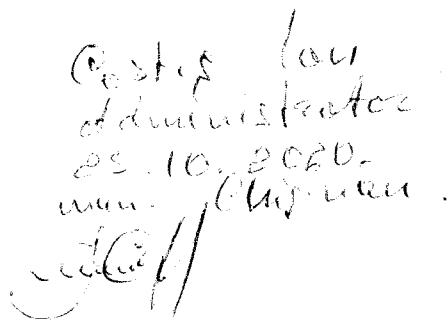 Costiș Ion
administrator
25.10.2020.
mun. Chișinău.